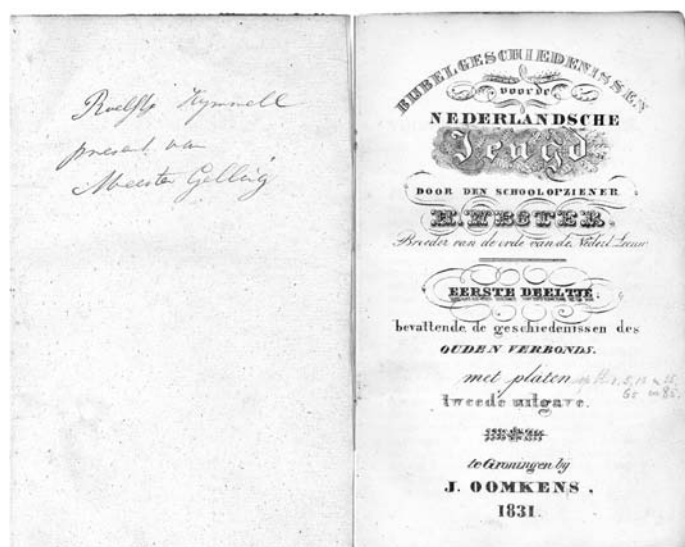 Roelfke Hymmell
present van
Meester Gelling
BIJBELGESCHIEDENISSEN
voor de
NEDERLANDSCHE
Jeugd
DOOR DEN SCHOOLOPZIENER
H. WESTER.
Broeder van de orde van de Nederl. Leeuw
EERSTE DEELTJE,
bevattende de geschiedenissen des
OUDEN VERBONDS.
met platen
tweede uitgave.
te Groningen by
J. OOMKENS,
1831.